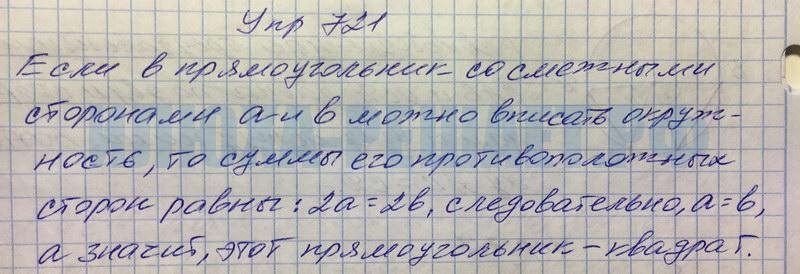 Упр 721
Если в прямоугольник со смежными
сторонами a и b можно вписать окруж-
ность, то суммы его противоположных
сторон равны: 2a = 2b, следовательно, a = b,
а значит, этот прямоугольник - квадрат.